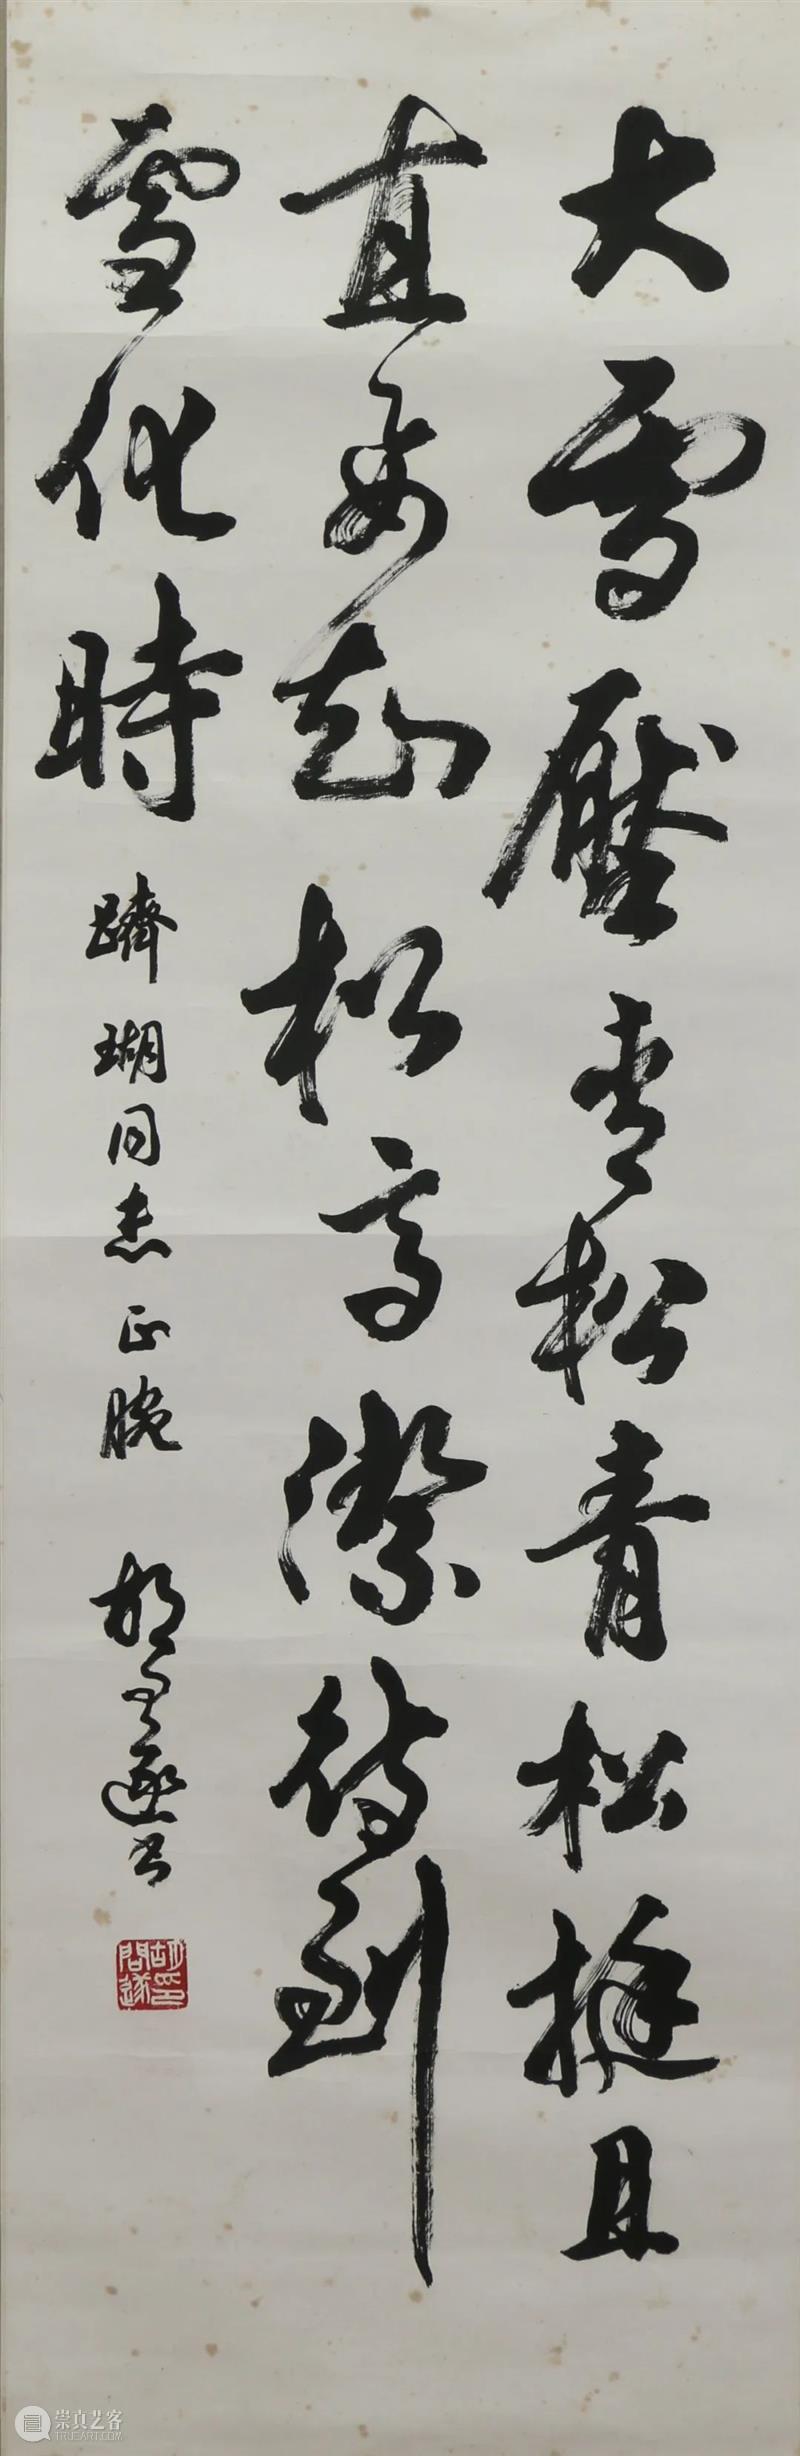 大雪壓青松青松挺且
直要知松高潔待到
雪化時 躋瑚同志正腕 胡問遂書
胡印問遂
崇真艺客
TRUEART.COM